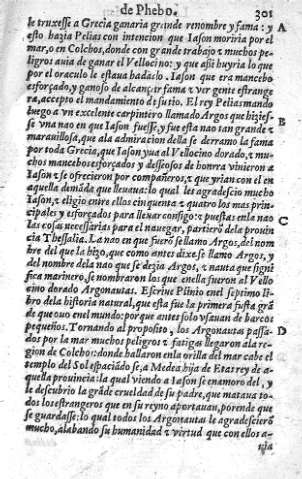 de Phebo.
301
le truxesse a Grecia ganaria grande renombre y fama: y
esto hazia Pelias con intencion que Iason moriria por el
mar, o en Colchos, donde con grande trabajo y muchos pe-
ligros auia de ganar el Vellocino: y que assi huyria lo que
por el oraculo le estaua hadado. Iason, que era mancebo
esforçado, y ganoso de alcançar fama y ver gente estrange
ra, accepto el mandamiento de su tio. El rey Pelias mando
luego a vn excelente carpintero llamado Argos que hizies-
B
se vna nao en que Iason fuesse, y fue esta nao tan grande y
marauillosa, que ala admiracion della se derramo la fama
por toda Grecia, que Iason yua al Vellocino dorado, y mu-
chos mancebos esforçados y desseosos de honrra vinieron a
Iason y se ofrecieron por compañeros, y que yrian con el en
aquella demãda que lleuaua: lo qual les agradescio mucho
Iason, y eligio entre ellos cincuenta y quatro los mas prin-
cipales y esforçados para lleuar consigo: y puestas enla nao
C
las cosas necessarias para el nauegar, partierõ dela prouin
cia Thessalia. La nao en que fuerõ se llamo Argos, del nom
bre del que la hizo, que como antes dixe se llamo Argos, y
del nombre dela nao que se dezia Argos, y nauta que signi
fica marinero, se nombraron los que enella fueron al Vello
cino dorado Argonautas. Escriue Plinio enel septimo li-
bro dela historia natural, que esta fue la primera fusta grã
de que ouo enel mundo: porque antes solo vsauan de barcos
pequeños. Tornando al proposito, los Argonautas passa-
D
dos por la mar muchos peligros y fatigas llegaron ala re-
gion de Colchos: donde hallaron enla orilla del mar cabe el
templo del Sol espaciãdose, a Medea hija de Etas rey de a-
quella prouincia: la qual viendo a Iason se enamoro del, y
le descubrio la grãde crueldad de su padre, que mataua to-
dos los estrangeros que en su reyno aportauan, porende que
se guardasse: lo qual todos los Argonautas le agradescierõ
mucho, alabando su humanidad y virtud que con ellos a-
A